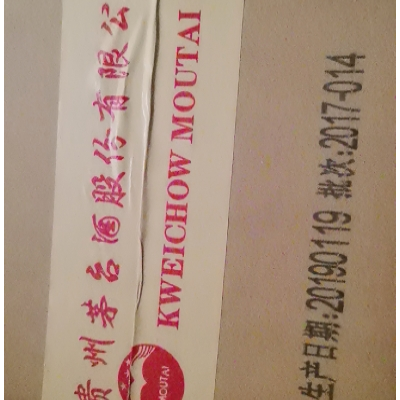 贵州茅台酒股份有限公
KWEICHOW MOUTAI
MOUTAI
生产日期:20190119 批次:2017-014